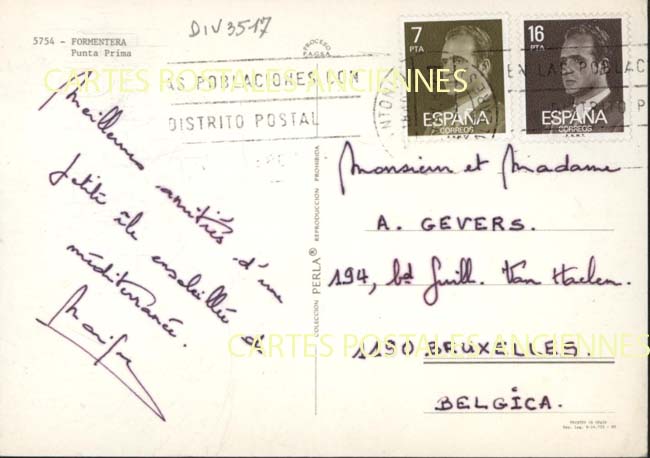 DIV3517
5754 - FORMENTERA
Punta Prima
Meilleures amitiés d'une
petite île ensoleillée de
méditerranée.
AS POBLACIONES CON
DISTRITO POSTAL
7
PTA
ESPAÑA
CORREOS
16
PTA
ESPAÑA
CORREOS
EN LAS POBLAC
Monsieur et Madame
A. GEVERS.
194, bd Guill. Van Haelen.
1190 BRUXELLES.
BELGICA.
COLECCION PERLA® REPRODUCCION PROHIBIDA
CARTES POSTALES ANCIENNES
CARTES POSTALES ANCIENNES
PRINTED IN SPAIN